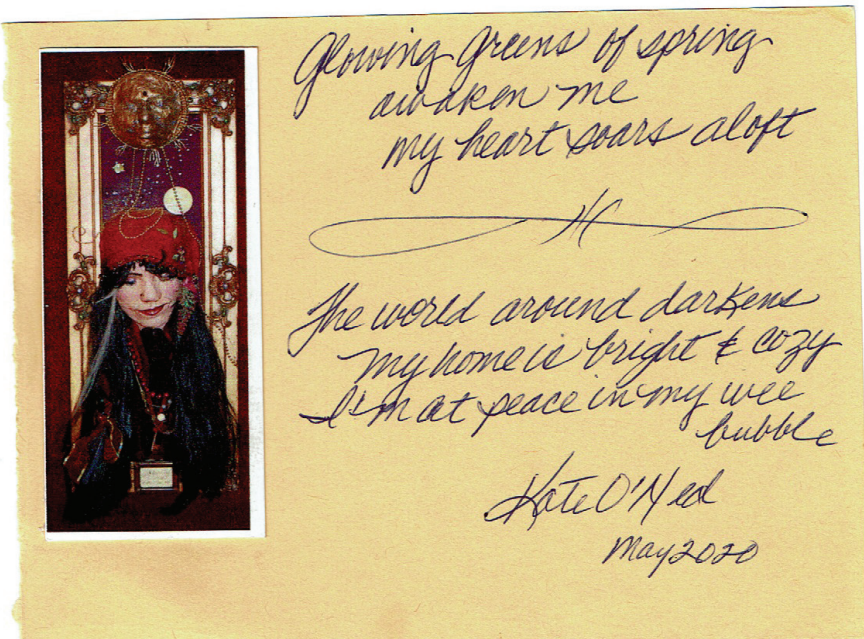 Glowing Greens of spring
awaken me
my heart soars aloft
The world around darkens
my home is bright & cozy
I'm at peace in my wee
bubble
Kate O'Neal
May 2020